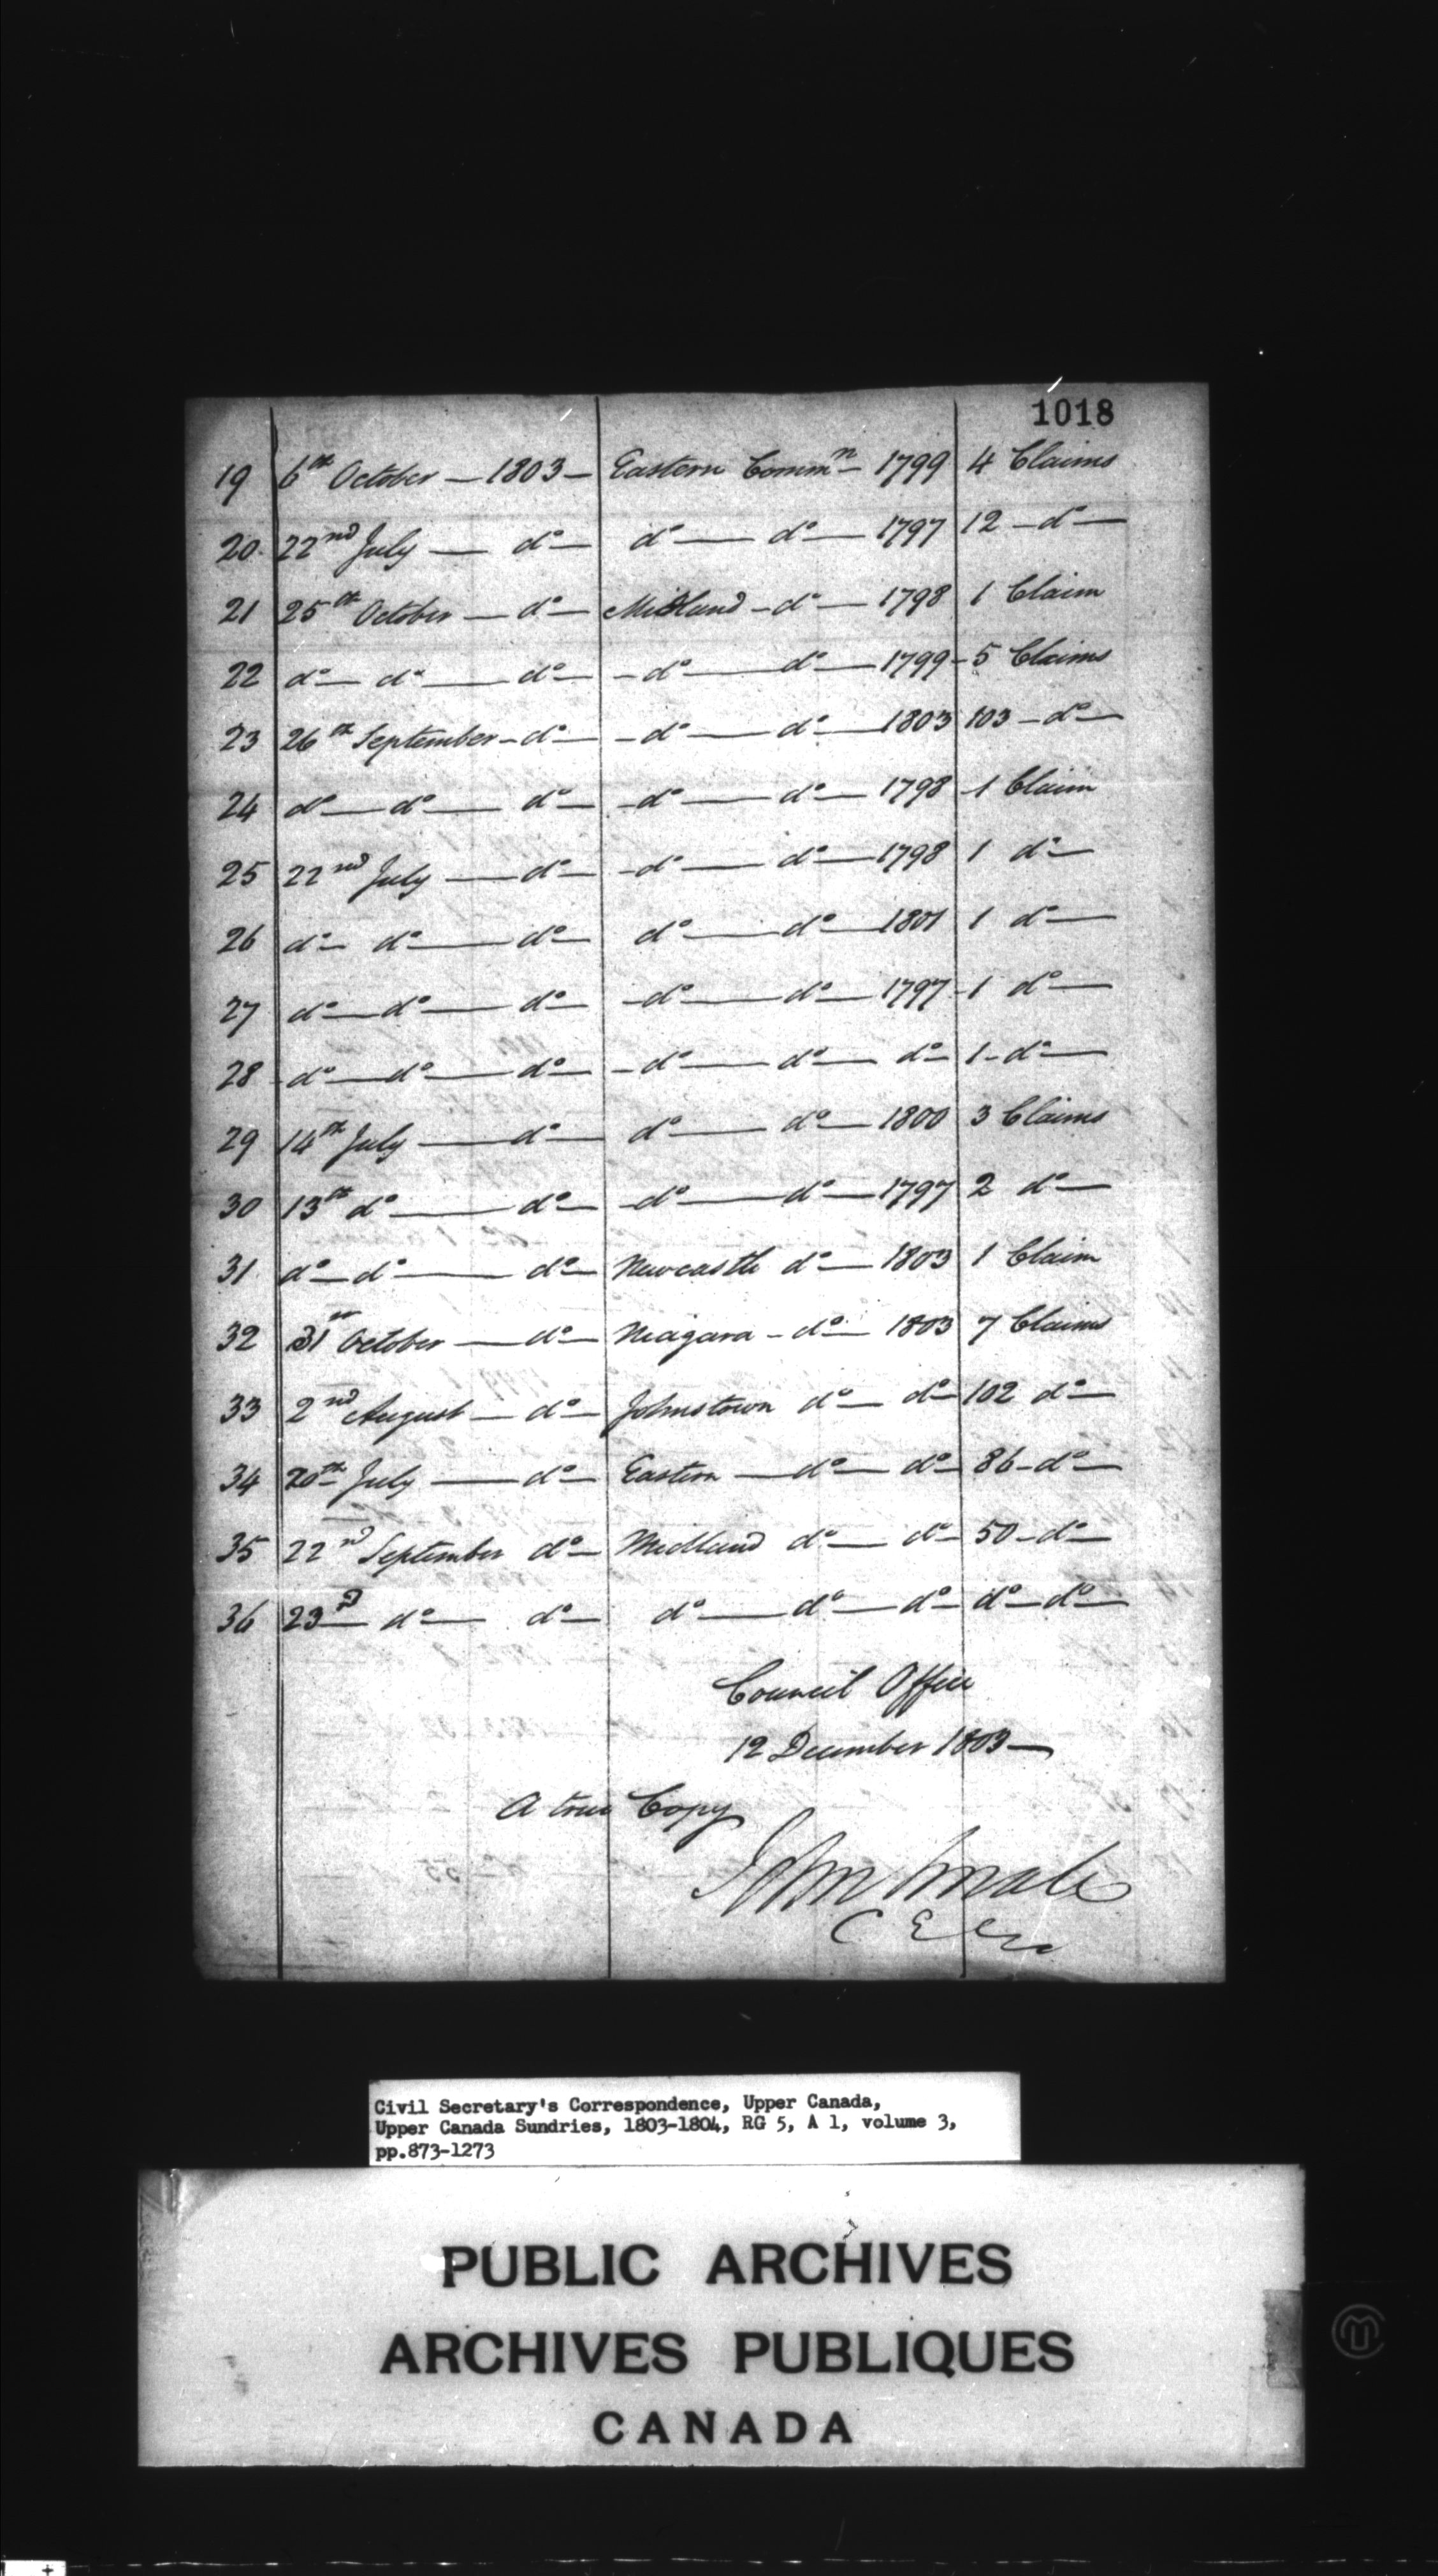 1018
19 6th October — 1803 — Eastern Commn — 1799 4 Claims
20 22nd July — do — do — do — 1797 12 — do —
21 25th October — do — Midland — do — 1798 1 Claim
22 do — do — do — do — do — 1799 - 5 Claims
23 26th September — do — do — do — 1803 103 — do —
24 do — do — do — do — do — 1798 1 Claim
25 22nd July — do — do — do — 1798 1 do —
26 do — do — do — do — do — 1801 1 do —
27 do — do — do — do — do — 1797 1 do —
28 do — do — do — do — do — do — 1 - do —
29 14th July — do — do — do — 1800 3 Claims
30 13th do — do — do — do — 1797 2 do —
31 do — do — do — Newcastle do — 1803 1 Claim
32 31st October — do — Niagara — do — 1803 7 Claims
33 2nd August — do — Johnstown do — do — 102 do —
34 20th July — do — Eastern — do — do — 86 - do —
35 22nd September do — Midland do — do — 50 - do —
36 23d — do — do — do — do — do — do — do —
Council Office
12 December 1803 —
A true Copy
John Small
C E C
Civil Secretary's Correspondence, Upper Canada,
Upper Canada Sundries, 1803-1804, RG 5, A 1, volume 3,
pp.873-1273
PUBLIC ARCHIVES
ARCHIVES PUBLIQUES
CANADA